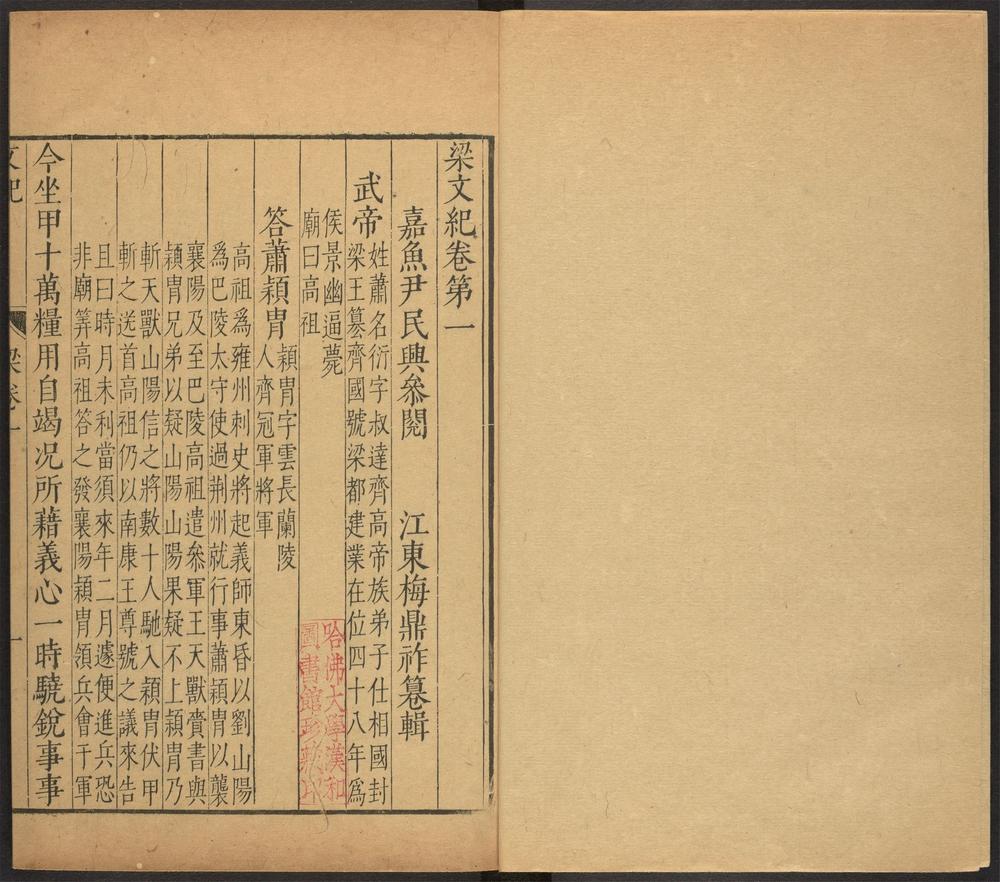 梁文紀卷第一
嘉魚尹民興叅閱 江東梅鼎祚纂輯
武帝
姓蕭名衍字叔達齊高帝族弟子仕相國封
梁王篡齊國號梁都建業在位四十八年爲
侯景幽逼薨
廟曰高祖
答蕭穎胄
穎胄字雲長蘭陵
人齊冠軍將軍
高祖爲雍州刺史將起義師東昏以劉山陽
爲巴陵太守使過荆州就行事蕭穎胄以襲
襄陽及至巴陵高祖遣叅軍王天獸賫書與
穎胄兄弟以疑山陽山陽果疑不上穎胄乃
斬天獸山陽信之將數十人馳入穎胄伏甲
斬之送首高祖仍以南康王尊號之議來告
且曰時月未利當須來年二月遽便進兵恐
非廟筭高祖答之發襄陽穎胄領兵會于軍
今坐甲十萬糧用自竭况所藉義心一時驍銳事事
文紀
梁卷一
一
哈佛大學漢和
圖書館珍藏印